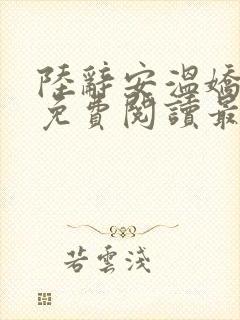 陸辭安溫嬌
免費閱讀最
若雲淺